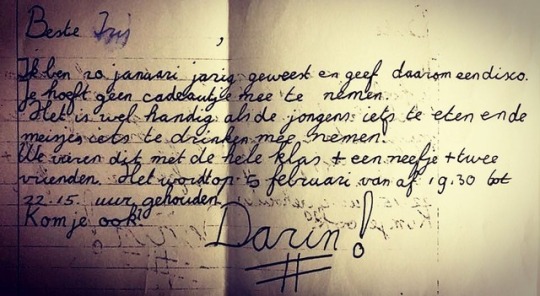 Beste Iris,
Ik ben 20 januari jarig geweest en geef daarom een disco.
Je hoeft geen cadeautje mee te nemen.
Het is wel handig als de jongens iets te eten en de
meisjes iets te drinken mee nemen.
We vieren dit met de hele klas + een neefje + twee
vrienden. Het wordt op 5 februari van af 19.30 tot
22.15 uur gehouden.
Kom je ook!
Darin!